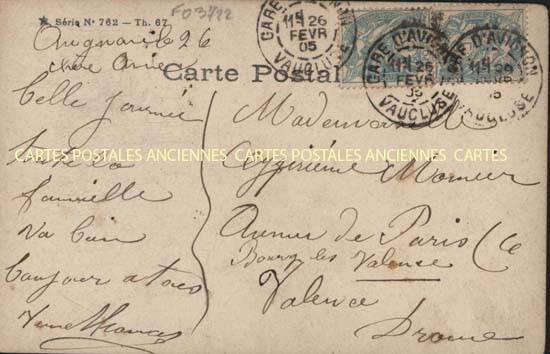 Série N° 762 - Th. 67
FO 3722
Avignon le 26
chère Amie
Carte Postale
Belle journée
famille
va bien
bonjour a tous
Mademoiselle
Monier
Avenue de Paris
Bourg les Valence
Valence
Drome
GARE D'AVIGNON
26
FEVR
05
VAUCLUSE
GARE D'AVIGNON
26
FEVR
05
VAUCLUSE
GARE D'AVIGNON
VAUCLUSE
CARTES POSTALES ANCIENNES CARTES POSTALES ANCIENNES CARTES